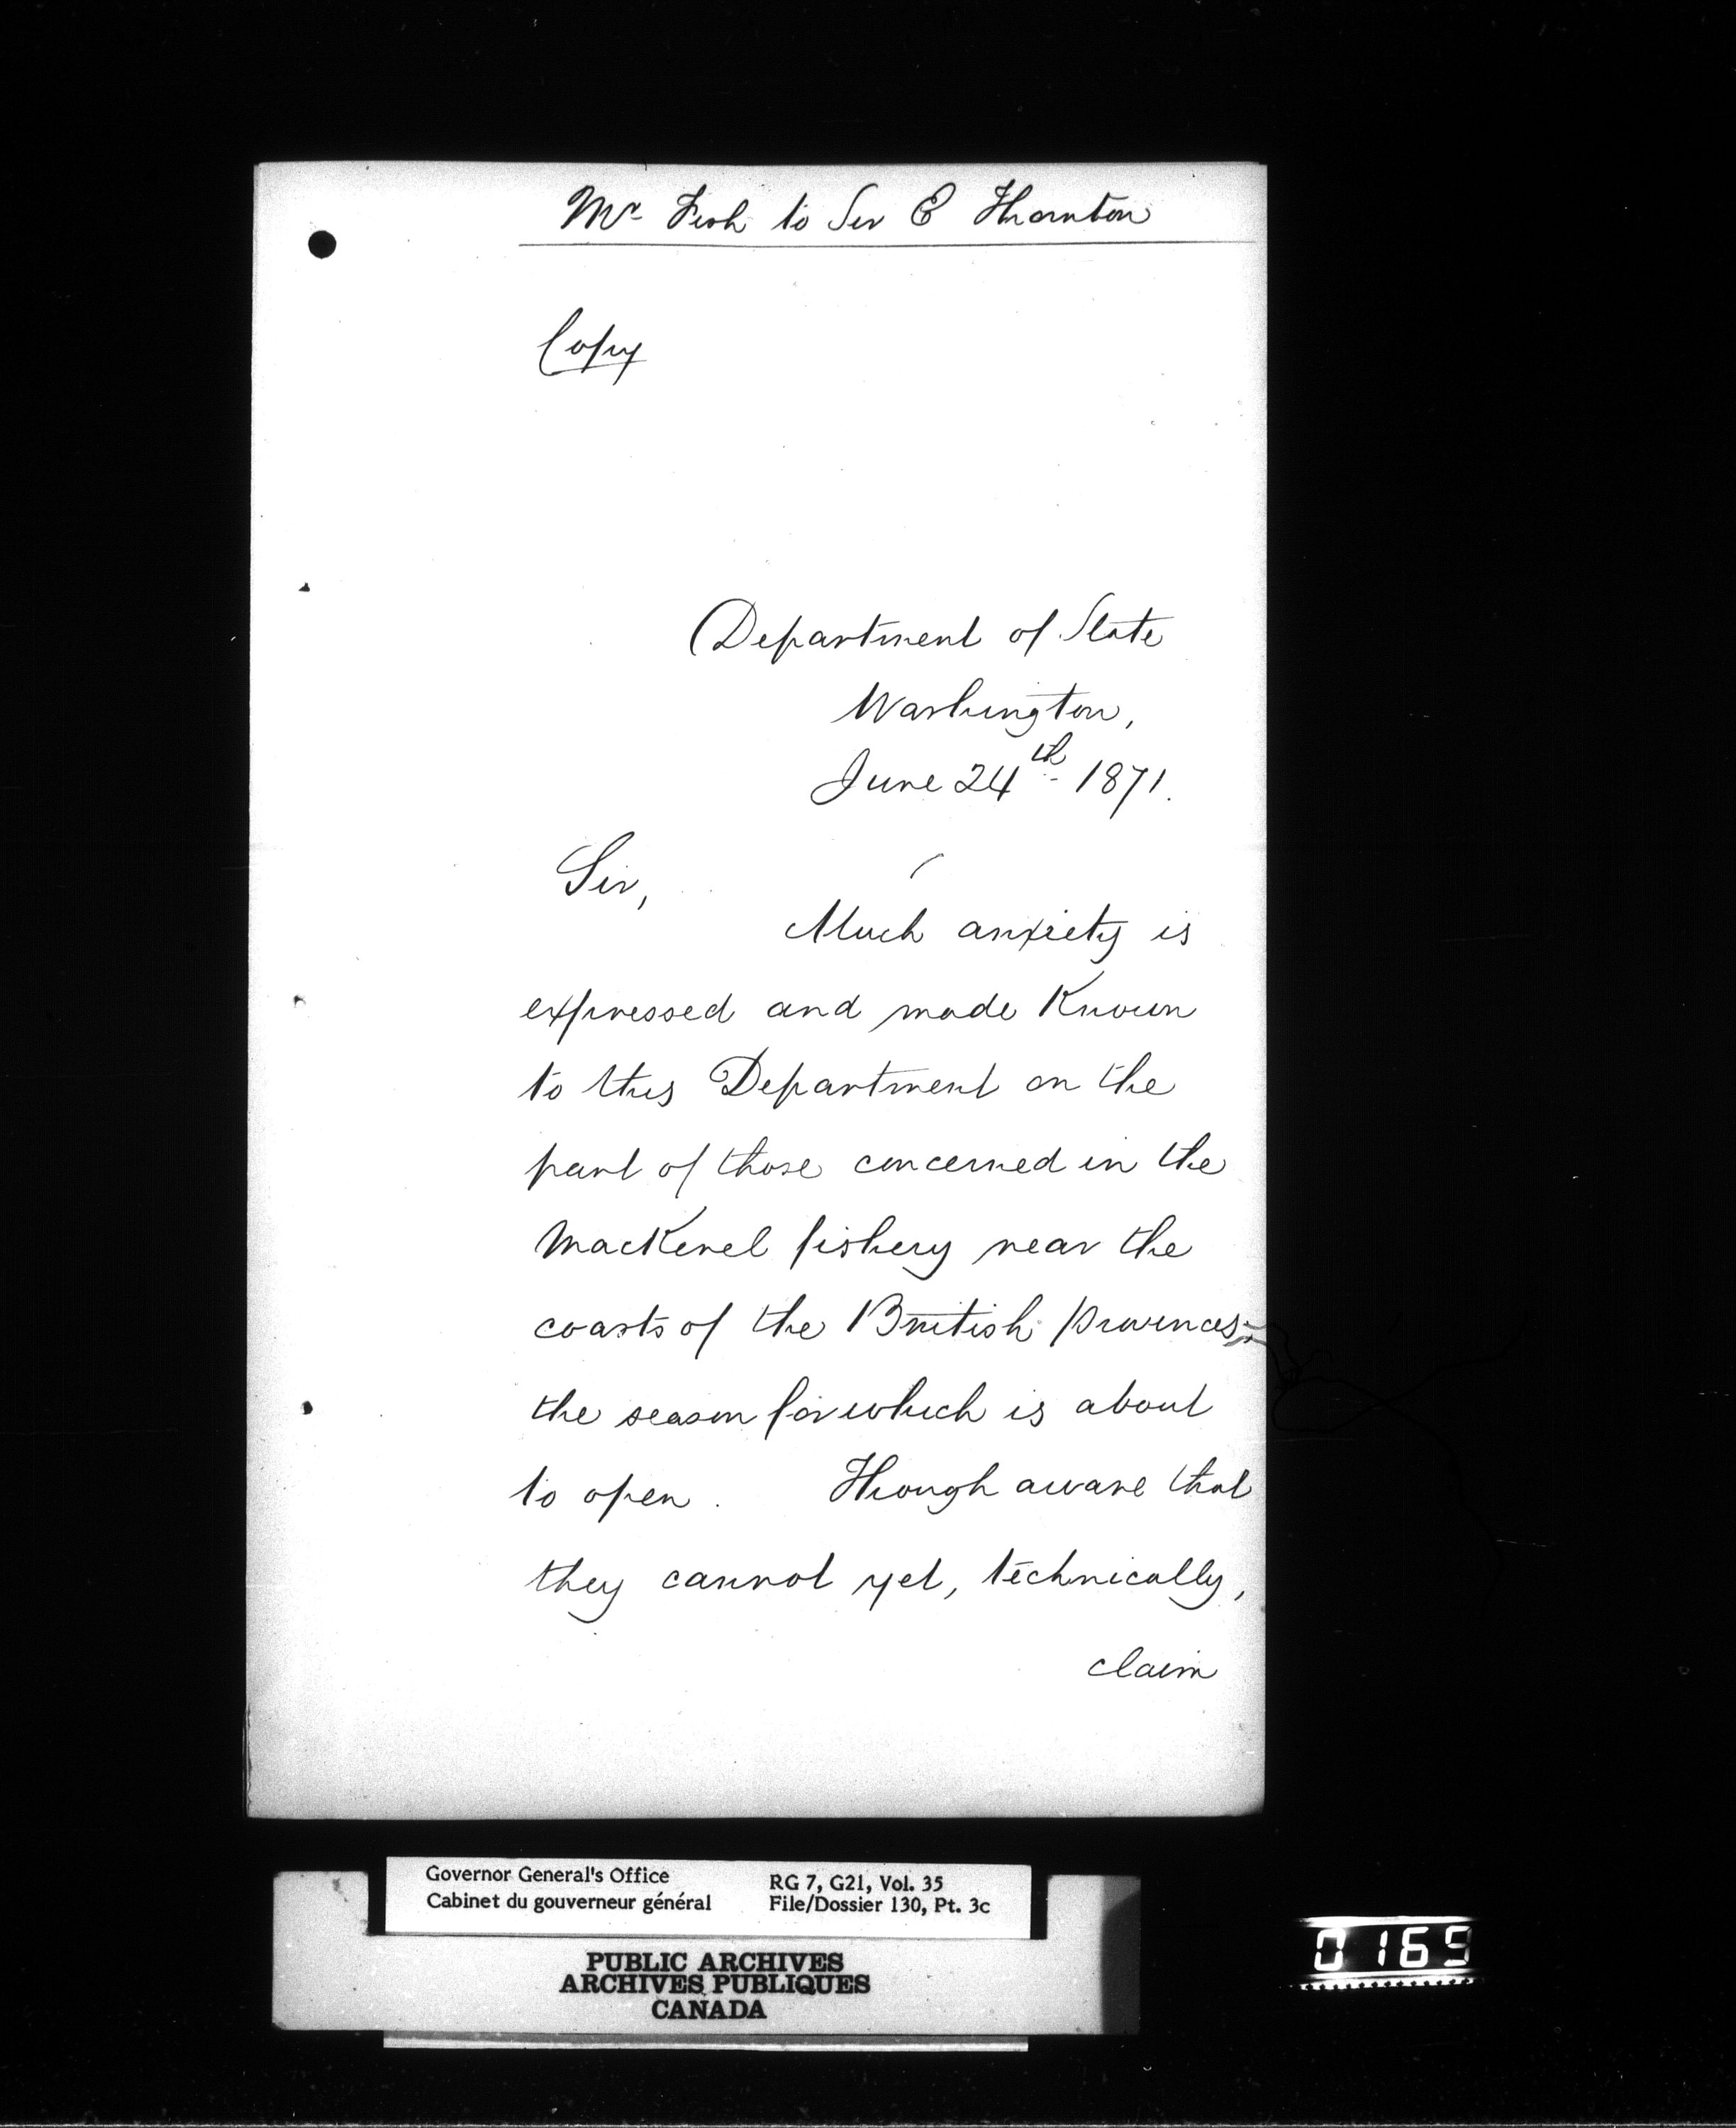 Mr Fish to Sir E Thornton
Copy
Department of State
Washington,
June 24th 1871.
Sir,
Much anxiety is
expressed and made Known
to this Department on the
part of those concerned in the
Mackerel fishery near the
coasts of the British Provinces,
the season for which is about
to open. Though aware that
they cannot yet, technically,
claim
Governor General's Office
Cabinet du gouverneur général
RG 7, G21, Vol. 35
File/Dossier 130, Pt. 3c
PUBLIC ARCHIVES
ARCHIVES PUBLIQUES
CANADA
0165